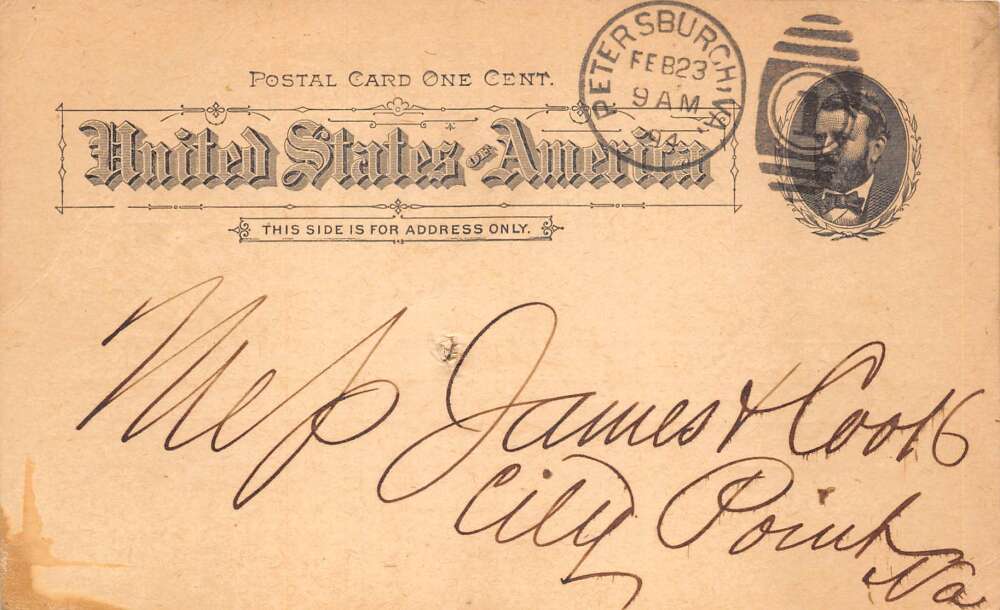 POSTAL CARD ONE CENT.
United States OF America
THIS SIDE IS FOR ADDRESS ONLY.
PETERSBURGH, VA.
FEB 23
9 AM
94
1
Mess James & Cook
City Point
Va